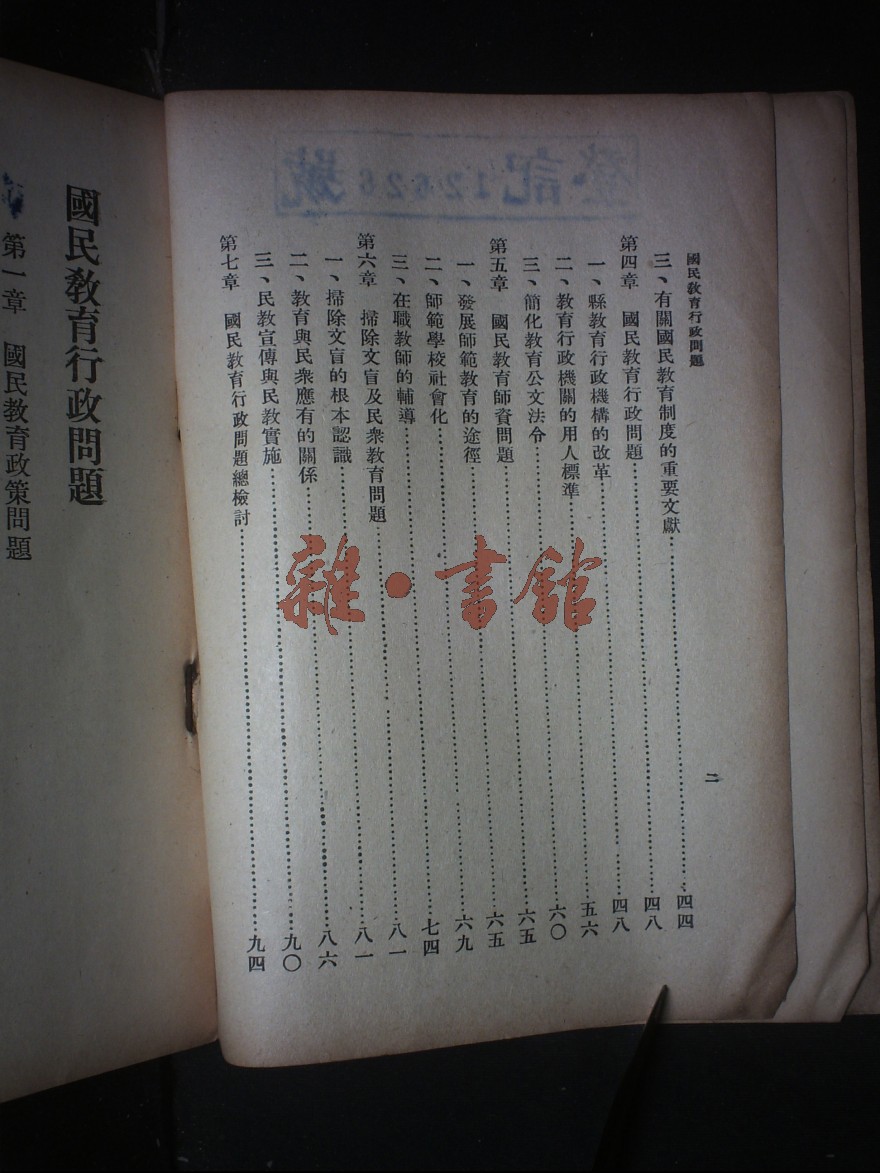 國民教育行政問題
二
三、有關國民教育制度的重要文獻……四四
第四章　國民教育行政問題……四八
一、縣教育行政機構的改革……四八
二、教育行政機關的用人標準……五六
三、簡化教育公文法令……六〇
第五章　國民教育師資問題……六五
一、發展師範教育的途徑……六五
二、師範學校社會化……六九
三、在職教師的輔導……七四
第六章　掃除文盲及民衆教育問題……八一
一、掃除文盲的根本認識……八一
二、教育與民衆應有的關係……八六
三、民教宣傳與民教實施……九〇
第七章　國民教育行政問題總檢討……九四
國民教育行政問題
第一章　國民教育政策問題
雜·書館